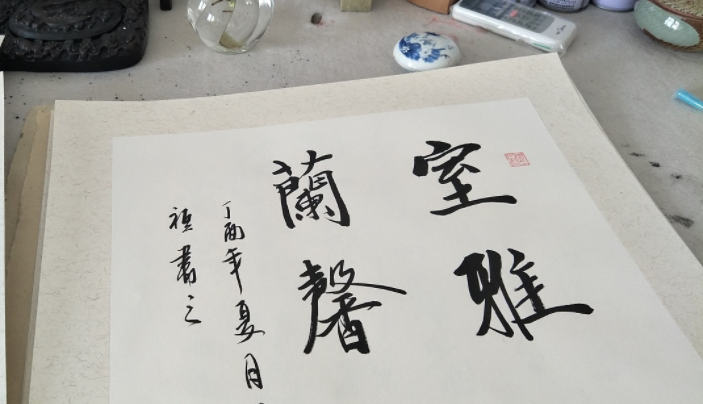 室雅
蘭馨
丁酉年夏月
書之